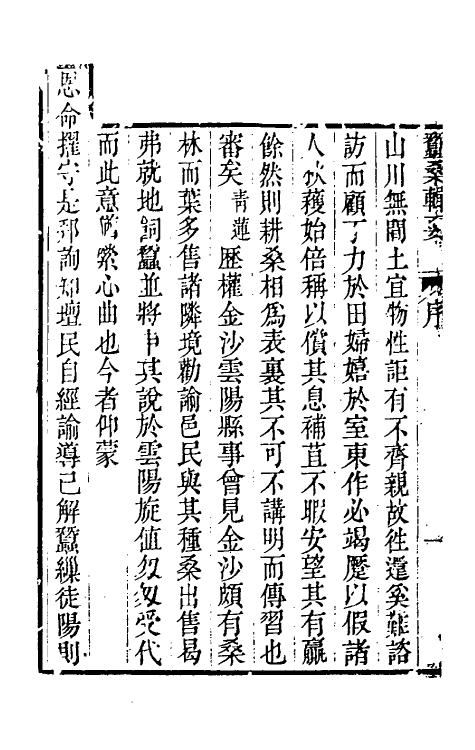 蠶桑輯要 序 一
山川無間土宜物性詎有不齊親故往還奚難諮
訪而顧丁力於田婦嬉於室東作必竭蹷以假諸
人秋穫始倍稱以償其息補苴不暇安望其有贏
餘然則耕桑相為表裏其不可不講明而傳習也
審矣青蓮歷權金沙雲陽縣事會見金沙頗有桑
林而葉多售諸隣境勸諭邑民與其種桑出售曷
弗就地飼蠶並將申其說於雲陽旋值匆匆受代
而此意縈心曲也今者仰蒙
恩命擢守是郡詢知壇民自經諭導已解蠶繅徒陽則